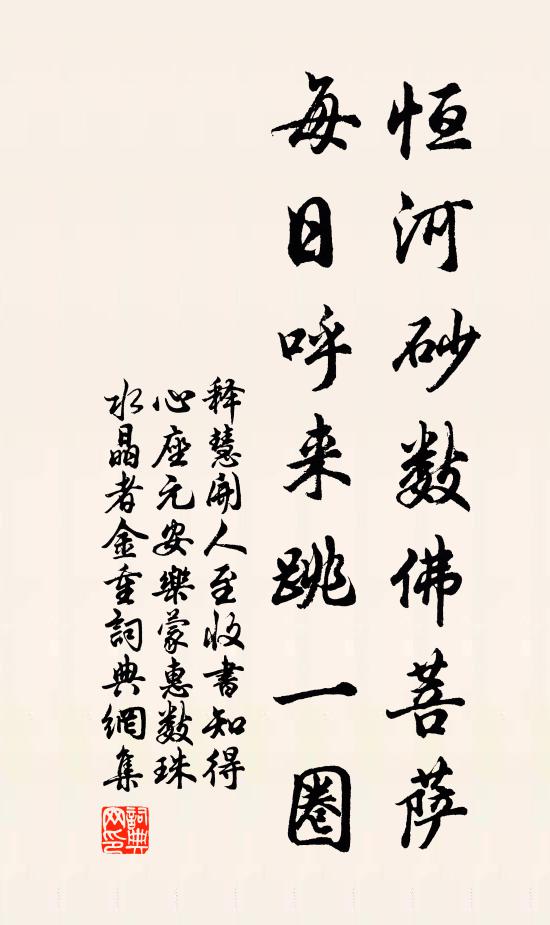 恒河砂数佛菩萨
每日呼来跳一圈
释慧開人至收書知得
心座元安樂蒙惠数珠
水晶者金重詞典網集
詞典